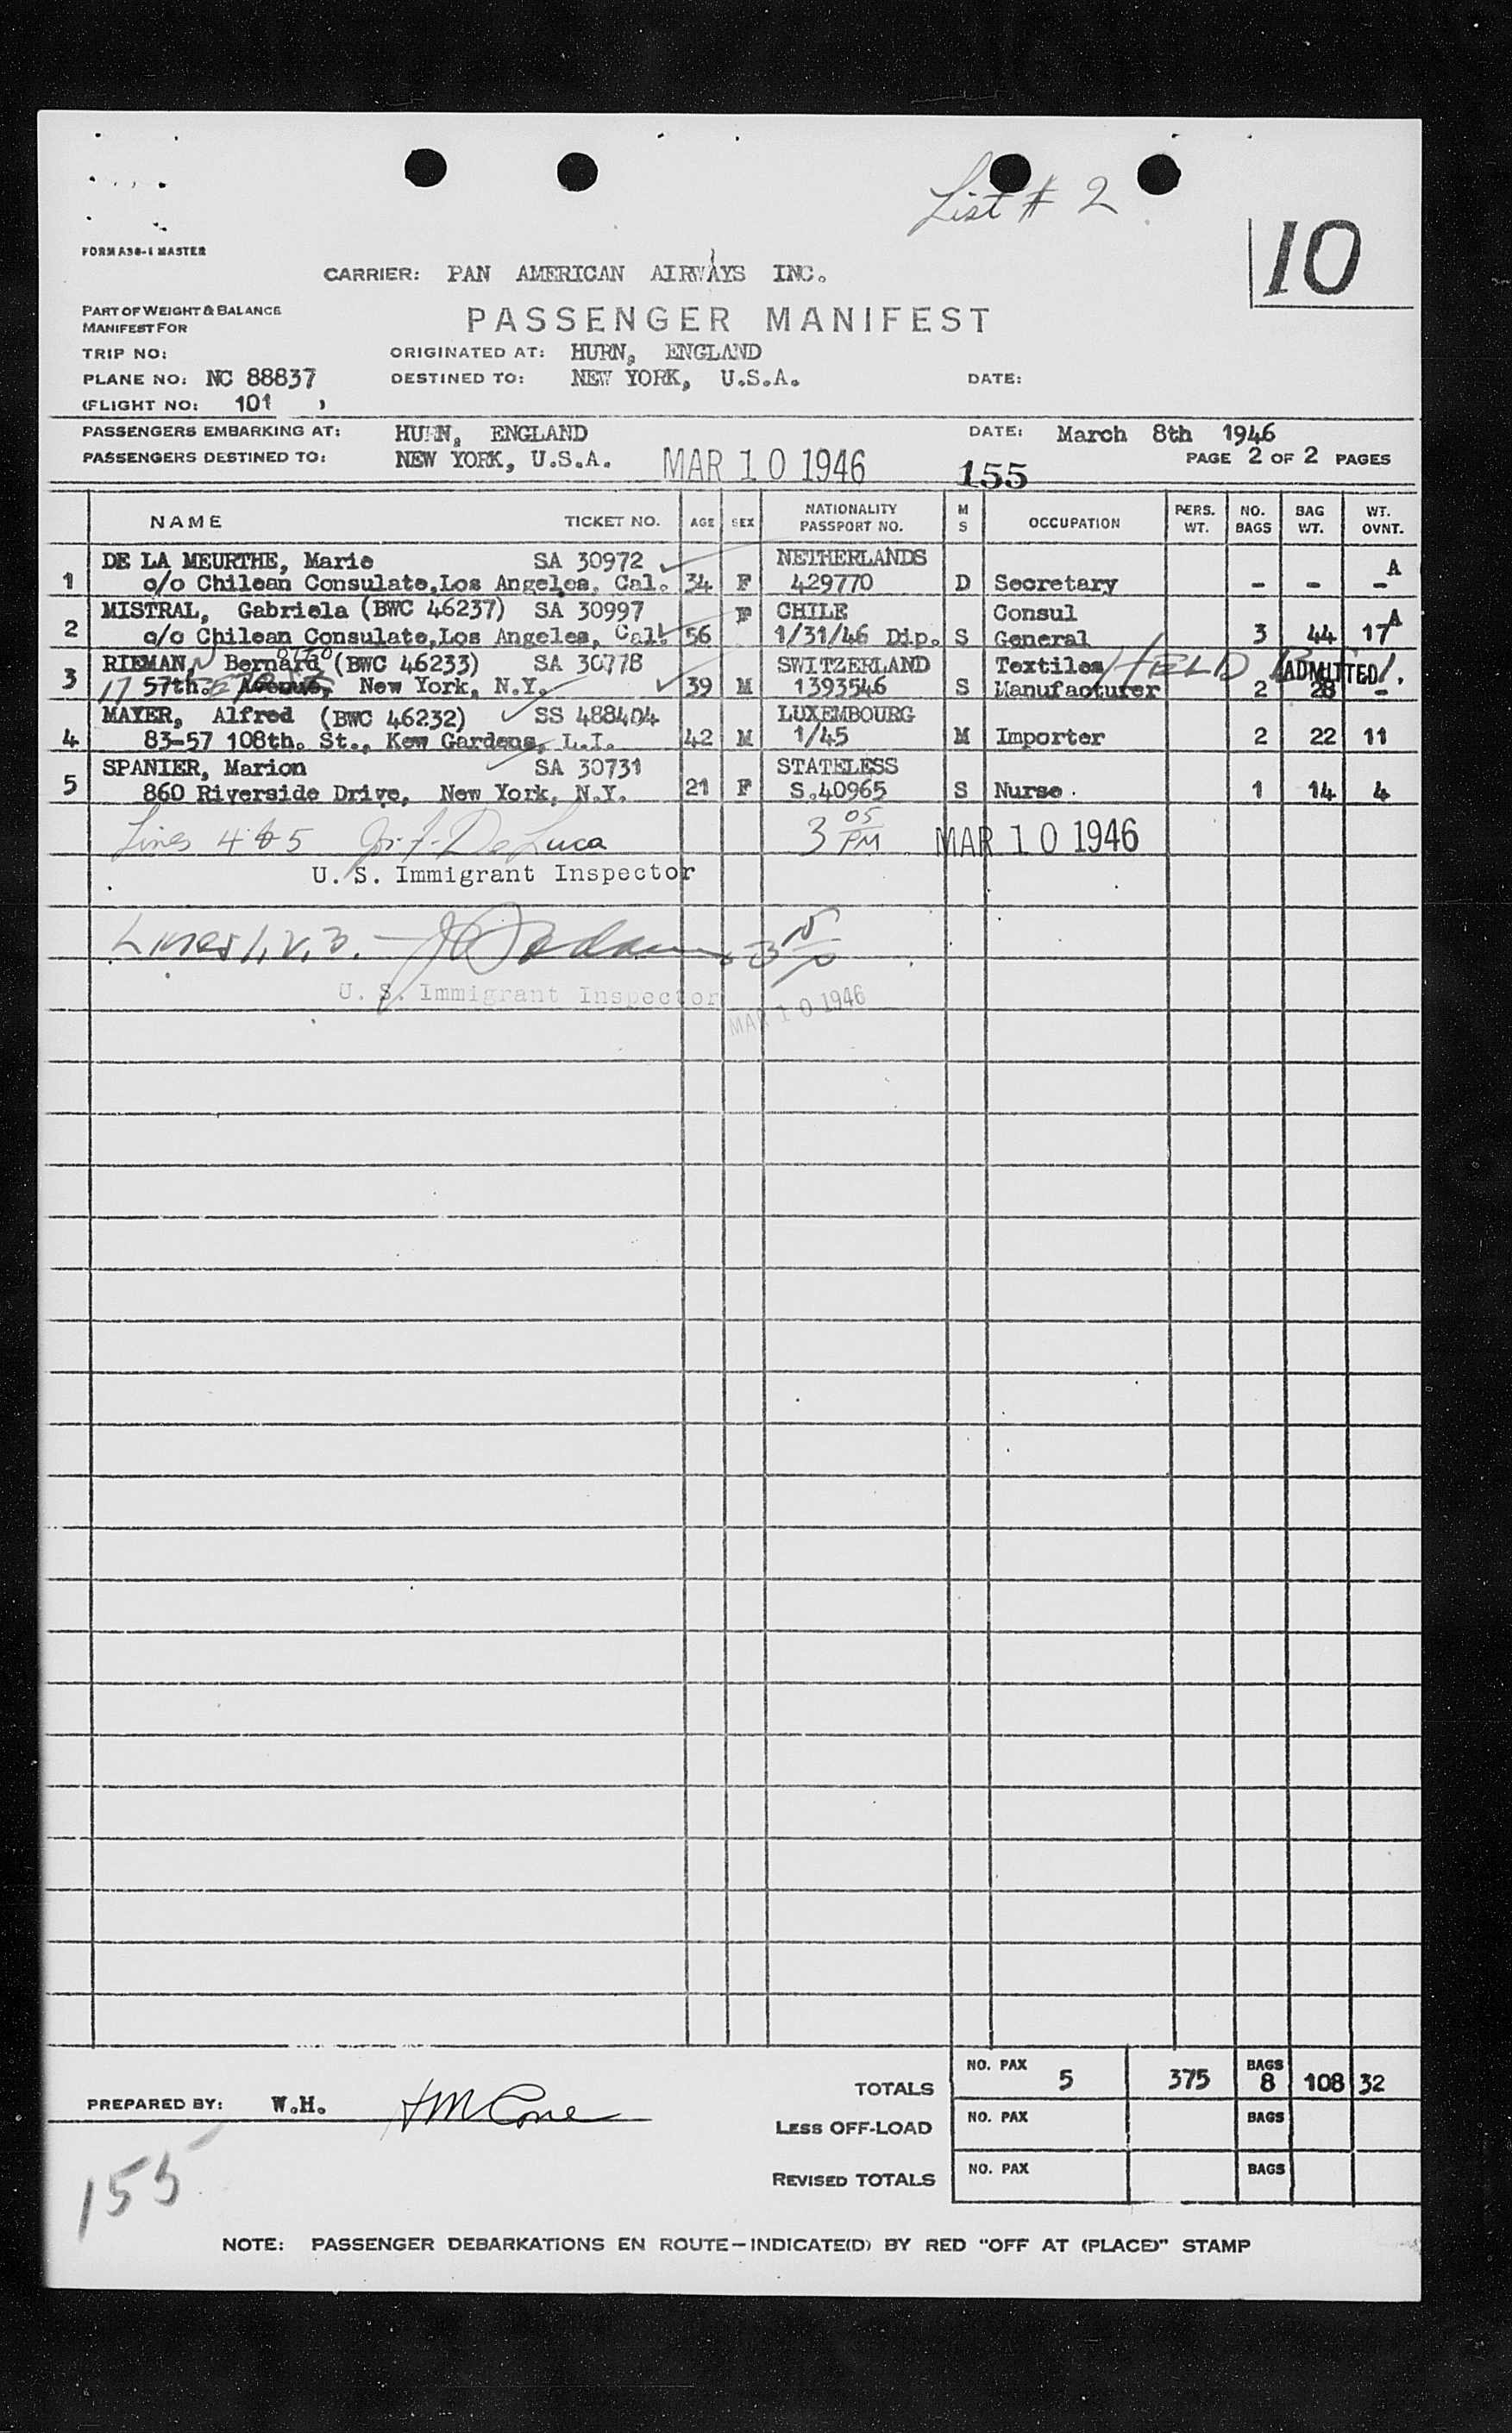 List # 2
10
FORM A36-1 MASTER
CARRIER: PAN AMERICAN AIRWAYS INC.
PART OF WEIGHT & BALANCE
MANIFEST FOR
PASSENGER MANIFEST
TRIP NO: ORIGINATED AT: HURN, ENGLAND
PLANE NO: NC 88837 DESTINED TO: NEW YORK, U.S.A. DATE:
(FLIGHT NO: 101 )
PASSENGERS EMBARKING AT: HURN, ENGLAND DATE: March 8th 1946
PASSENGERS DESTINED TO: NEW YORK, U.S.A. MAR 10 1946 155 PAGE 2 OF 2 PAGES
NAME TICKET NO. AGE SEX NATIONALITY PASSPORT NO. M S OCCUPATION PERS. WT. NO. BAGS BAG WT. WT. OVNT.
DE LA MEURTHE, Marie SA 30972 NETHERLANDS A
1 c/o Chilean Consulate,Los Angeles, Cal. 34 F 429770 D Secretary - - -
MISTRAL, Gabriela (BWC 46237) SA 30997 F CHILE Consul A
2 c/o Chilean Consulate,Los Angeles, Cal. 56 1/31/46 Dip. S General 3 44 17
RIEMAN, N Bernard OTTO (BWC 46233) SA 30778 SWITZERLAND Textiles HELD ADMITTED
3 17 57th. Avenue, New York, N.Y. 39 M 1393546 S Manufacturer 2 28 -
MAYER, Alfred (BWC 46232) SS 488404 LUXEMBOURG
4 83-57 108th. St., Kew Gardens, L.I. 42 M 1/45 M Importer 2 22 11
SPANIER, Marion SA 30731 STATELESS
5 860 Riverside Drive, New York, N.Y. 21 F S.40965 S Nurse. 1 14 4
Lines 4 & 5 Jos. F. De Luca 3 05 PM MAR 10 1946
U. S. Immigrant Inspector
Lines 1, 2, 3. -
U. S. Immigrant Inspector
MAR 10 1946
TOTALS NO. PAX 5 375 BAGS 8 108 32
PREPARED BY: W.H.
LESS OFF-LOAD NO. PAX BAGS
REVISED TOTALS NO. PAX BAGS
155
NOTE: PASSENGER DEBARKATIONS EN ROUTE-INDICATE(D) BY RED "OFF AT (PLACE)" STAMP